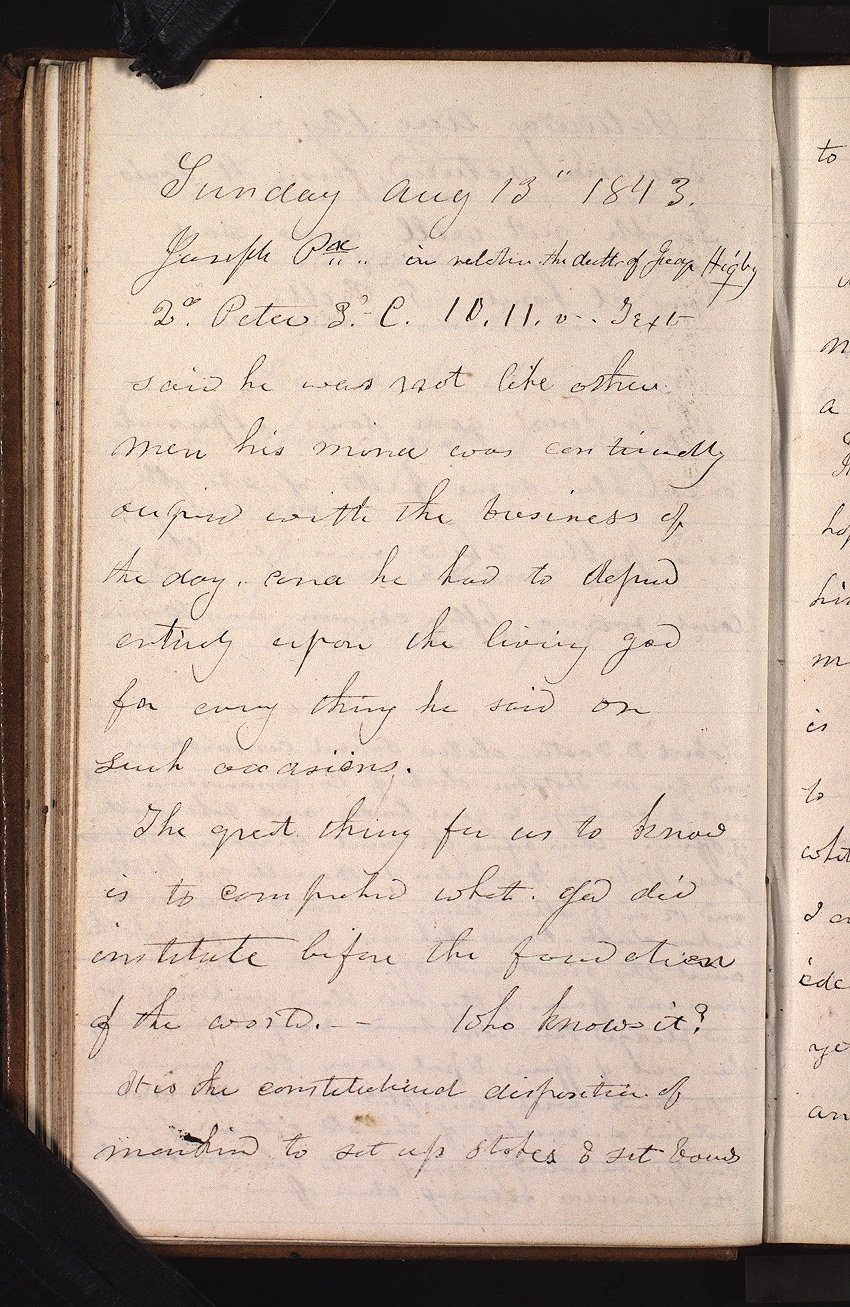 Sunday Aug 13" 1843.
Joseph Pxx .. in relation the death of Judge Higby
2d. Peter 3d- C. 10. 11. v-. Text
said he was not like other
men his mind was continually
occupied with the business of
the day. and he had to depend
entirely upon the living god
for every thing he said on
such occasions.
The great thing for us to know
is to comprehend what. god did
institute before the foundation
of the world. - - Who knows it?
It is the constitutional disposition of
mankind to set up stakes & set bounds
to
a
is
to